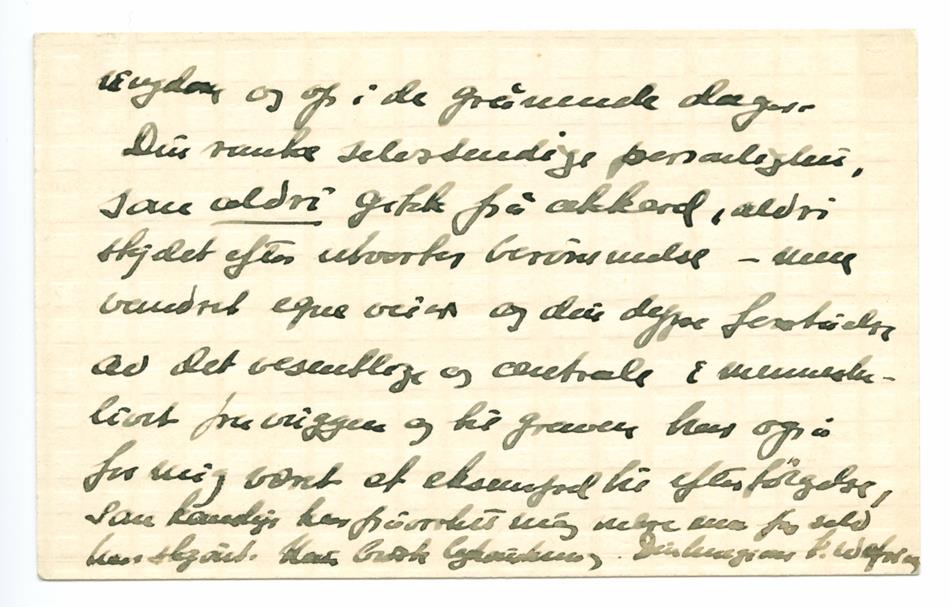 ungdom og op i de grånende dager.
Din ranke selvstendige personlighet,
som aldri gikk på akkord, aldri
skjelet efter utvortes berömmelse – men
vandret egne veier og din dype forståelse
av det vesentlige og centrale i menneske-
livet fra vuggen og til graven har også
for mig været et eksempel til efterfölgelse,
som kanskje har påvirket mig mere enn jeg selv
har skjönt. Din hengivne